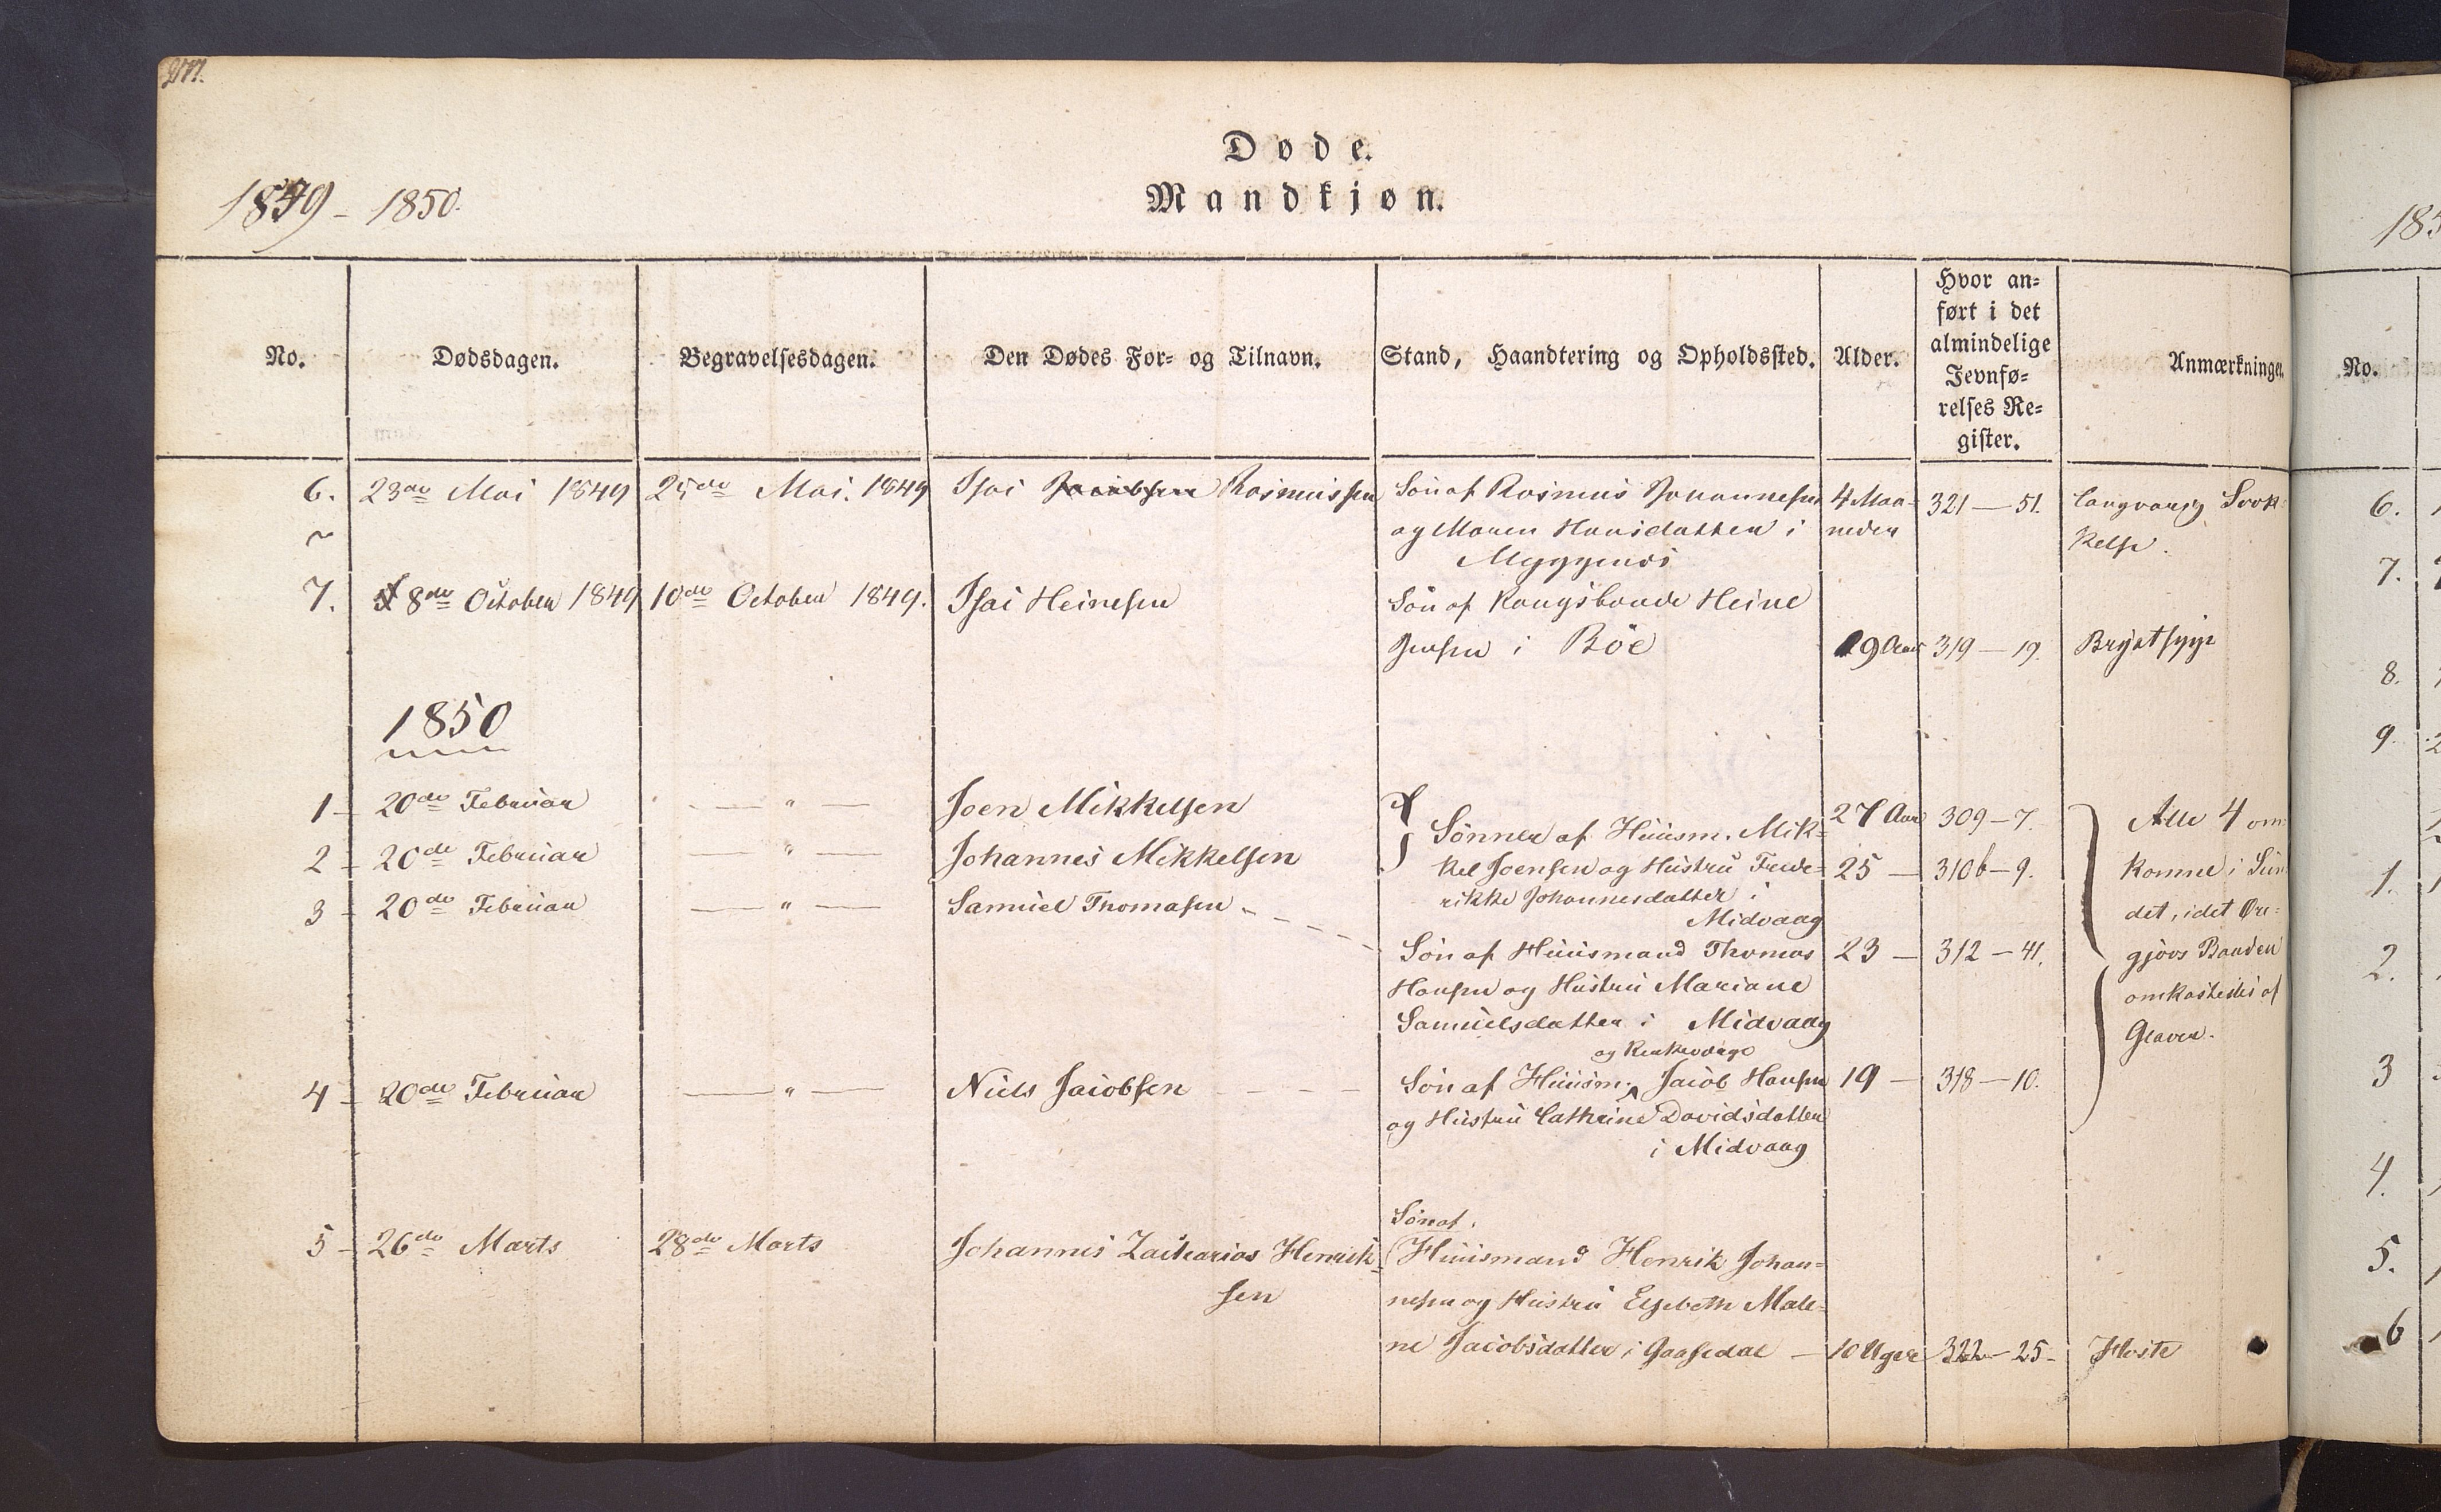 Døde.
Mandkjøn.
1849 - 1850.
No. Dødsdagen. Begravelsesdagen. Den Dødes For- og Tilnavn. Stand, Haandtering og Opholdssted. Alder. Hvor an-
ført i det
almindelige
Jevnfø-
relses Re-
gister. Anmærkninger
6. 23de Mai 1849 25de Mai. 1849 Isai Jacobsen Rasmussen Søn af Rasmus Johannesen 4 Maa- 321 — 51. langvarig Svæk-
og Maren Hansdatter i neder kelse.
Myggenæs
7. 8de October 1849 10de October 1849. Isai Heinesen Søn af Kongsbonde Heine
Jensen i Böe 19 Aar 319 — 19. Brystsyge
1850
1 - 20de Februar — " — Joen Mikkelsen Sønner af Huusm. Mik- 27 Aar 309 - 7. Alle 4 om-
2 - 20de Februar — " — Johannes Mikkelsen kel Joensen og Hustru Frede- 25 — 310b - 9. komne i Sun-
3 - 20de Februar — " — Samuel Thomasen - - rikke Johannesdatter i det, idet Øre-
Midvaag
Søn af Huusmand Thomas 23 — 312 - 41. gjovs Baaden
Hansen og Hustru Mariane omkastedes af
Samuelsdatter i Midvaag
og Enkemand
4 - 20de Februar — " — Niels Jacobsen Søn af Huusm. Jacob Hansen 19 — 318 - 10.
og Hustru Cathrine Davidsdatter
i Midvaag
Søn af.
5 - 26de Marts 28de Marts Johannes Zacharias Henrik- Huusmand Henrik Johan-
sen nesen og Hustru Elsebeth Male-
ne Jacobsdatter i Gaasedal — 10 Uger 322 - 25 - Hoste
185
No.
6.
7.
8.
9.
1.
2.
3
4.
5.
6